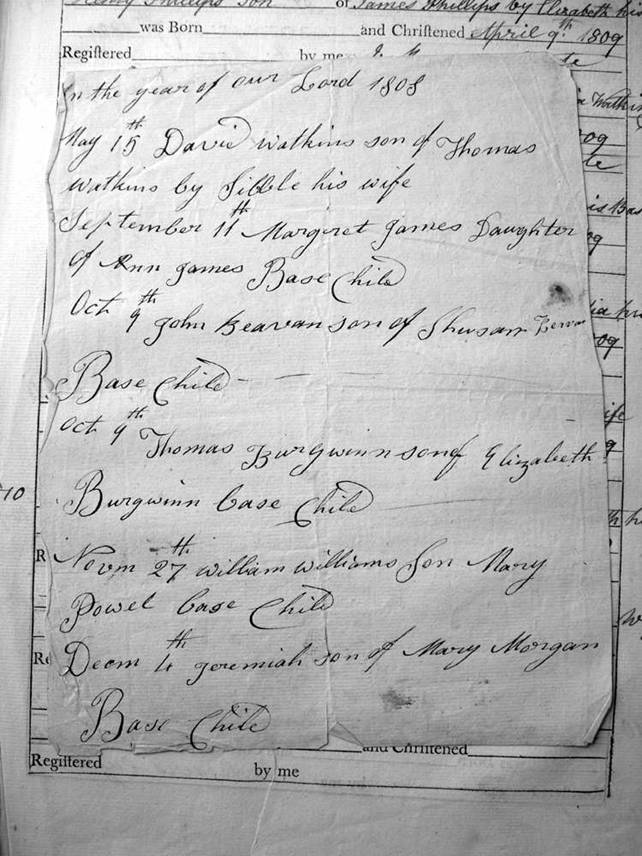 Henry Phillips Son of James Phillips by Elizabeth his
was Born and Christened April 9th 1809
Registered by me
In the year of our Lord 1808
May 15th David watkins son of Thomas
watkins by Sibble his wife
September 11th Margret James Daughter
of Ann James Base Child
Oct 9th John Beavan son of Shusan
Base Child
Oct 9th Thomas Burgwinn son of Elizabeth
Burgwinn base Child
Novm 27th william williams Son Mary
Powel base Child
Decm 4th Jeremiah son of Mary Morgan
Base Child
and Christened
Registered by me